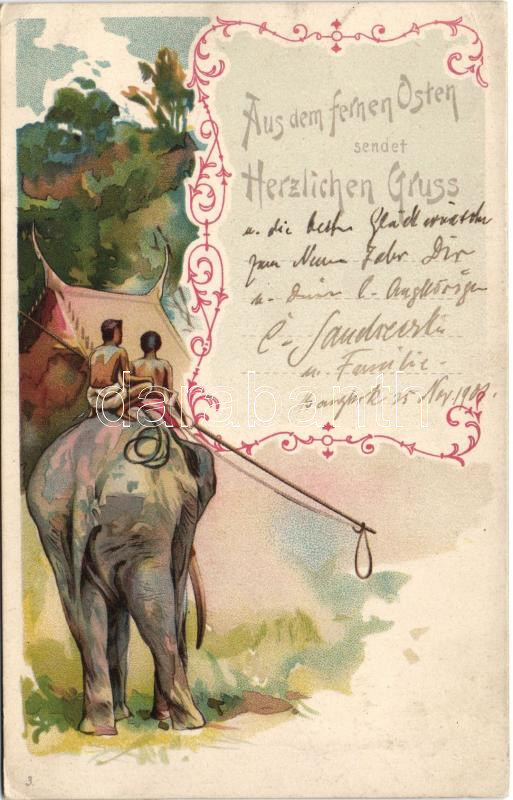 Aus dem fernen Osten
sendet
Herzlichen Gruss
u. die besten Glückwünsche
zum Neuen Jahr Dir
u. Deinen l. Angehörigen
C.
u. Familie.
Bangkok 25 Nov. 190
darabanth.com
3.